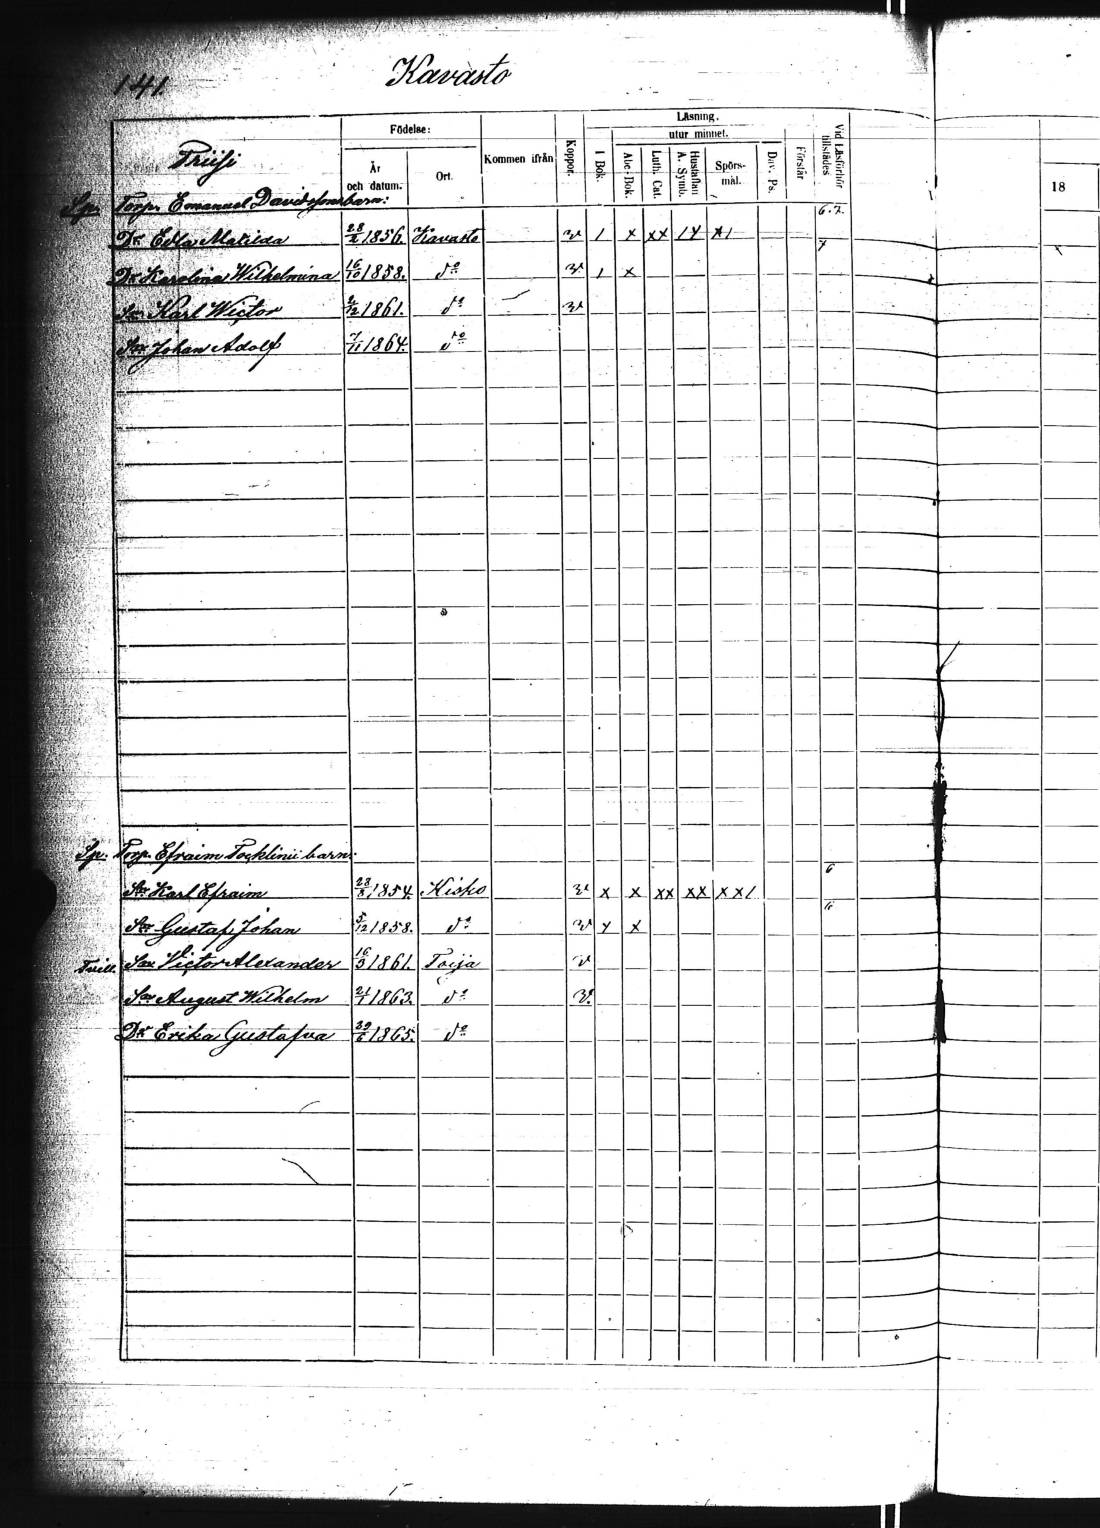 141.
Kavasto
Födelse:
Läsning.
utur minnet.
Kommen ifrån
Koppor.
I Bok.
Abc-Bok.
Luth. Cat.
Hustaflan A. Symb.
Spörs-mål.
Dav. Ps.
Förstår
Vid Läsförhör tillstädes
År och datum.
Ort.
18
Sp. Torp. Emanuel Davidssons barn: 6.7.
Dr Edla Matilda 28/2 1856. Kavasto v 1 x xx 1 x x1 7
Dr Karolina Wilhelmina 16/10 1858. do v 1 x
Son Karl Wictor 2/12 1861. do v
Son Johan Adolf 7/11 1864. do
Sp. Torp. Efraim Tocklinii barn: 6
Son Karl Efraim 1854. Kisko v x x xx xx xx1 6
Son Gustaf Johan 5/12 1858. do v x x
Tvill. Son Victor Alexander 16/9 1861. Toija v
Son August Wilhelm 21/1 1863. do v.
Dr Erika Gustafva 29/6 1865. do